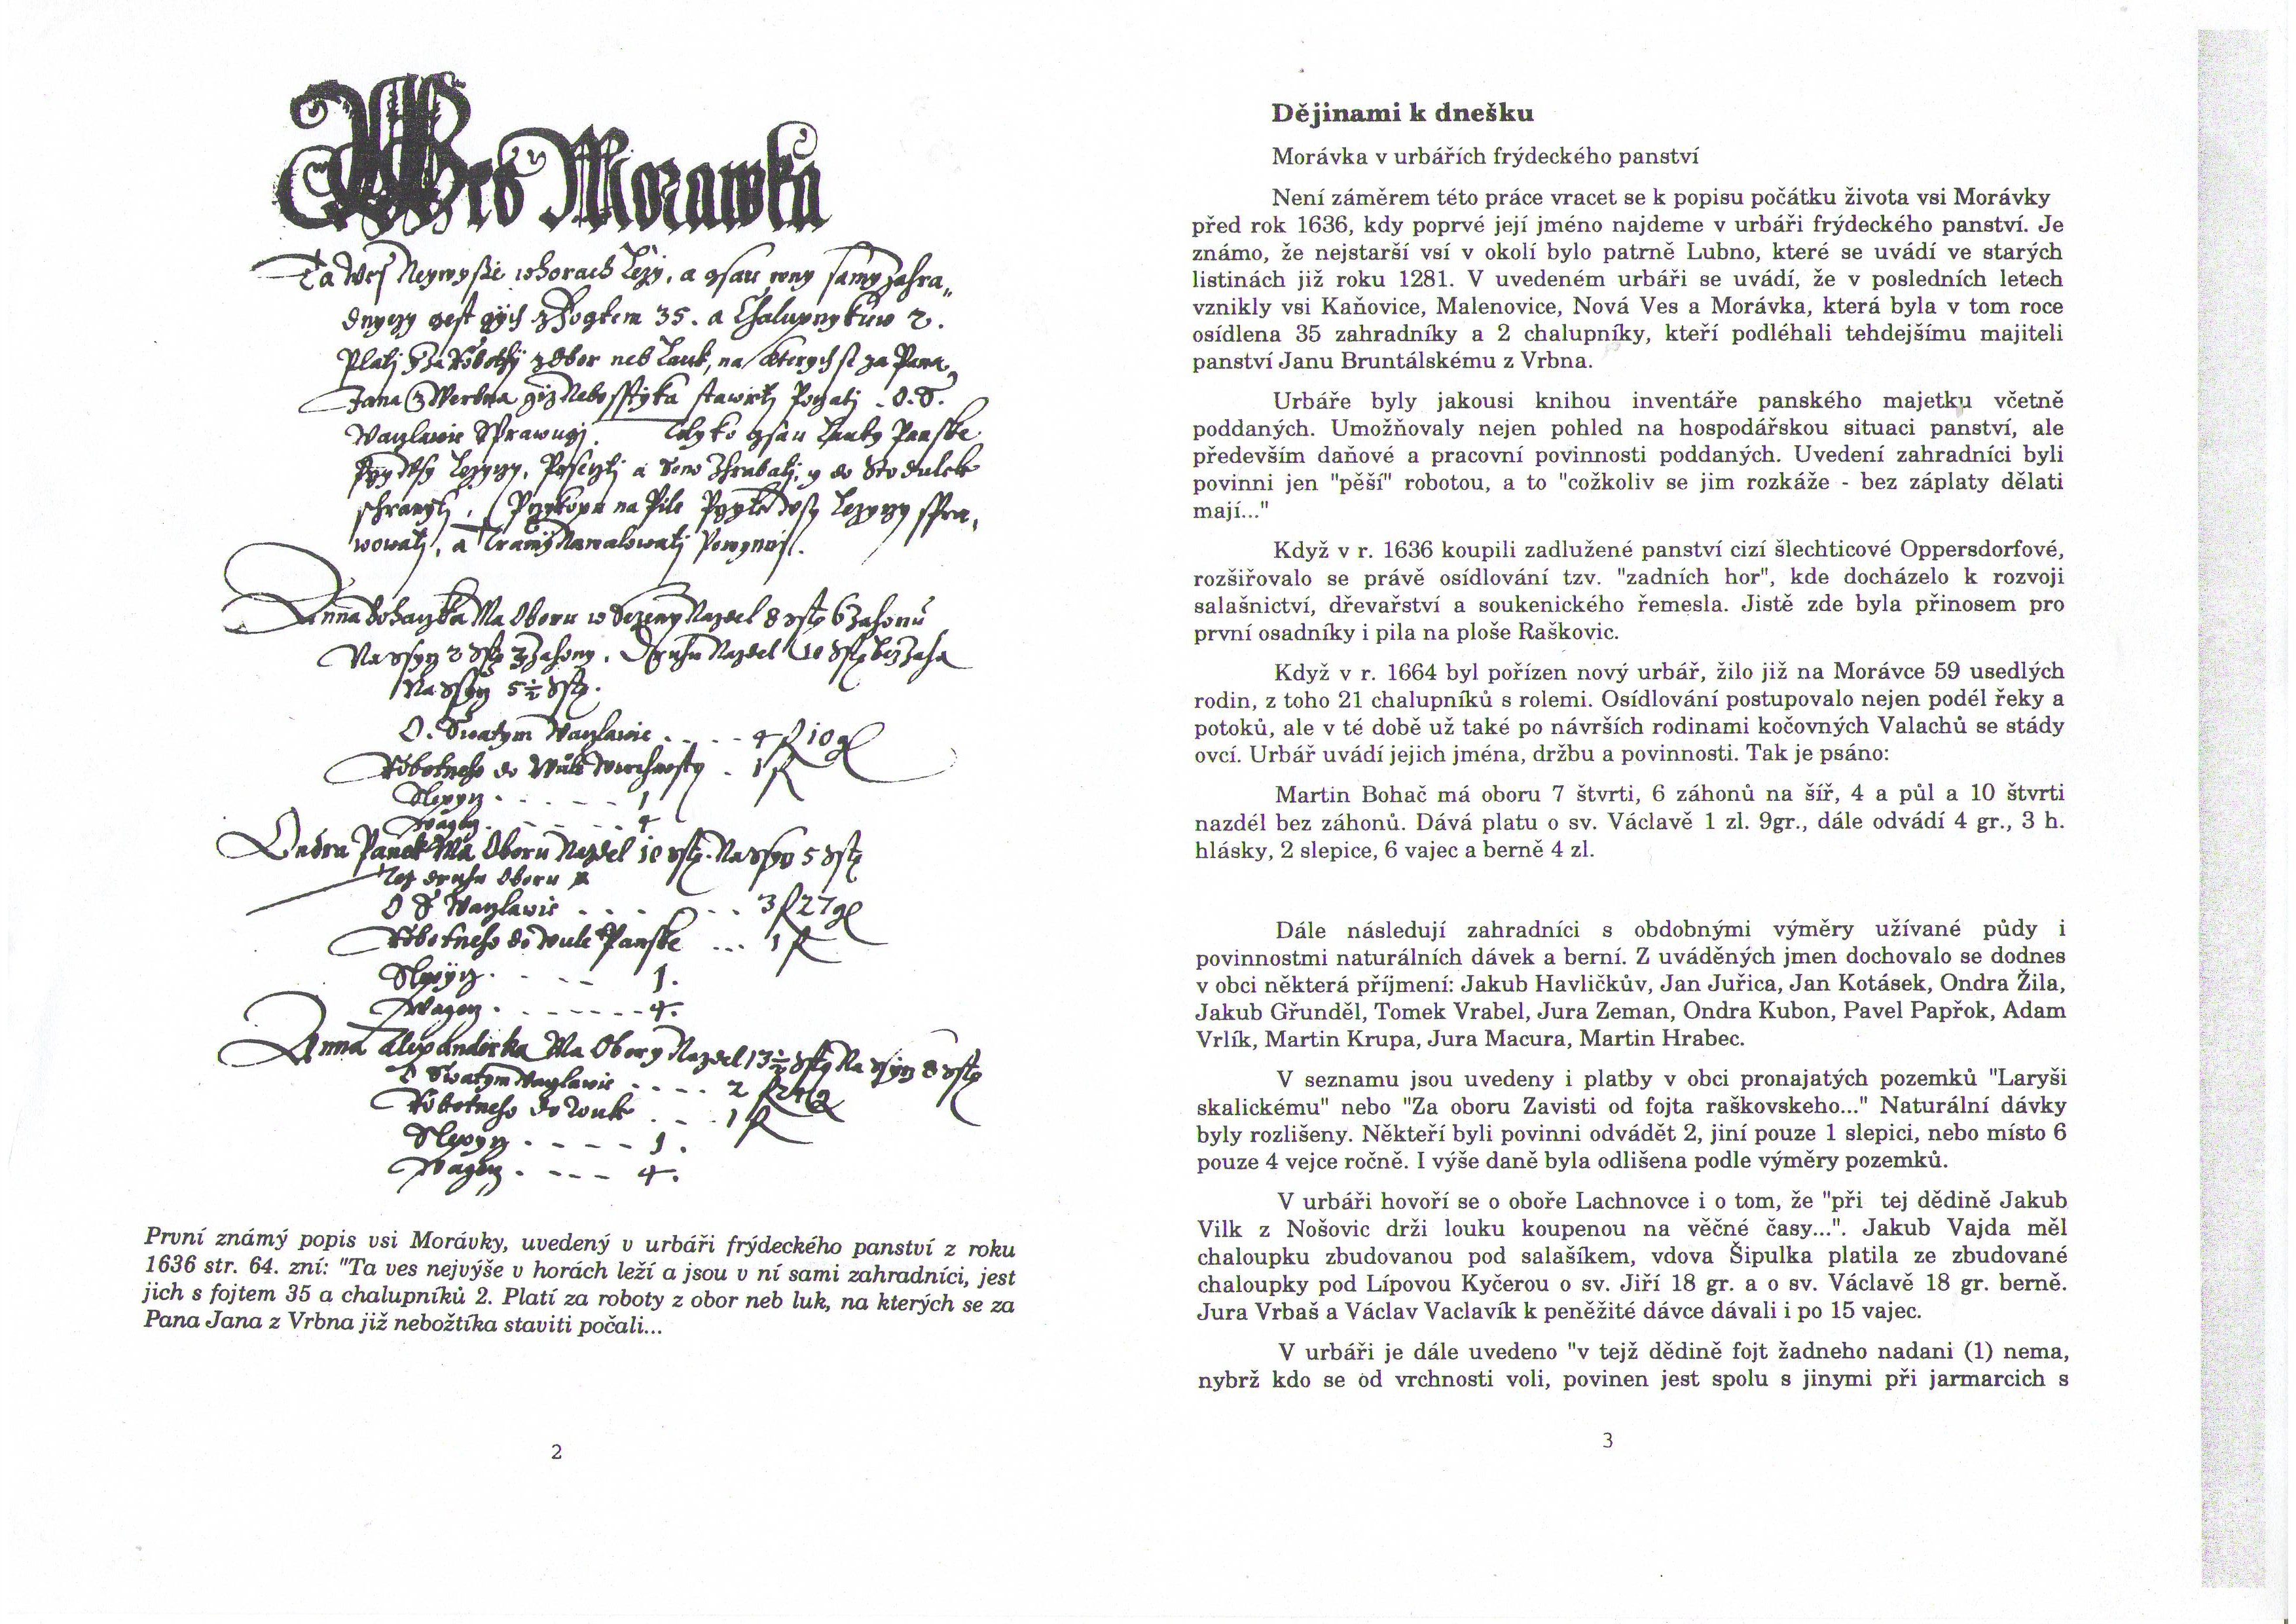 Wes Morawka
Ta Wes Neywysse w horach Lezy, a gsau w ny samy Zahra„
dnyczy gest gych z Fogtem 35. a Chalupnykuw 2.
Platj za Robothy z Obor neb Lauk, na kterych se za Pana
Jana z Werbna giz Nebosstyka stawietj Poczatj. O. S.
Waczlawie Sprawugj. Lauky Panske
Lezyczy, a Seno Shrabatj, y do Stodulek
na Pile Lezyczy spra„
wowatj, a Tramy Powynnj.
Anna Ma Oboru Nazdel 8 6 Zahonu
2 Zahony. Druhu Nazdel 10
5½
O. Swatym Waczlawie . . . . 4 fl 10 gl
Robotneho do Wule Wrchnosty . 1 fl
Slepycz . . . . . 1
Wagecz . . . . . 4
Ondra Panek Ma Oboru Nazdel 10 Na 5
Tez druhu Oboru
O S Waczlawie . . . . . 3 fl 27 gl
Robotneho do Wule Panske ... 1 fl
Slepycz . . . . 1.
Wagecz . . . . . . 4.
Anna Alexanderka Ma Obory Nazdel 13½ Na 8
O Swatym Waczlawie . . . . 2 fl
Robotneho do . . . 1 fl
Slepycz . . . . . 1.
Wagecz . . . . 4.
První známý popis vsi Morávky, uvedený v urbáři frýdeckého panství z roku
1636 str. 64. zní: "Ta ves nejvýše v horách leží a jsou v ní sami zahradníci, jest
jich s fojtem 35 a chalupníků 2. Platí za roboty z obor neb luk, na kterých se za
Pana Jana z Vrbna již nebožtíka staviti počali...
2
Dějinami k dnešku
Morávka v urbářích frýdeckého panství
Není záměrem této práce vracet se k popisu počátku života vsi Morávky
před rok 1636, kdy poprvé její jméno najdeme v urbáři frýdeckého panství. Je
známo, že nejstarší vsí v okolí bylo patrně Lubno, které se uvádí ve starých
listinách již roku 1281. V uvedeném urbáři se uvádí, že v posledních letech
vznikly vsi Kaňovice, Malenovice, Nová Ves a Morávka, která byla v tom roce
osídlena 35 zahradníky a 2 chalupníky, kteří podléhali tehdejšímu majiteli
panství Janu Bruntálskému z Vrbna.
Urbáře byly jakousi knihou inventáře panského majetku včetně
poddaných. Umožňovaly nejen pohled na hospodářskou situaci panství, ale
především daňové a pracovní povinnosti poddaných. Uvedení zahradníci byli
povinni jen "pěší" robotou, a to "cožkoliv se jim rozkáže - bez záplaty dělati
mají..."
Když v r. 1636 koupili zadlužené panství cizí šlechticové Oppersdorfové,
rozšiřovalo se právě osídlování tzv. "zadních hor", kde docházelo k rozvoji
salašnictví, dřevařství a soukenického řemesla. Jistě zde byla přinosem pro
první osadníky i pila na ploše Raškovic.
Když v r. 1664 byl pořízen nový urbář, žilo již na Morávce 59 usedlých
rodin, z toho 21 chalupníků s rolemi. Osídlování postupovalo nejen podél řeky a
potoků, ale v té době už také po návrších rodinami kočovných Valachů se stády
ovcí. Urbář uvádí jejich jména, držbu a povinnosti. Tak je psáno:
Martin Bohač má oboru 7 štvrti, 6 záhonů na šíř, 4 a půl a 10 štvrti
nazdél bez záhonů. Dává platu o sv. Václavě 1 zl. 9gr., dále odvádí 4 gr., 3 h.
hlásky, 2 slepice, 6 vajec a berně 4 zl.
Dále následují zahradníci s obdobnými výměry užívané půdy i
povinnostmi naturálních dávek a berní. Z uváděných jmen dochovalo se dodnes
v obci některá příjmení: Jakub Havličkův, Jan Juřica, Jan Kotásek, Ondra Žila,
Jakub Gřunděl, Tomek Vrabel, Jura Zeman, Ondra Kubon, Pavel Papřok, Adam
Vrlík, Martin Krupa, Jura Macura, Martin Hrabec.
V seznamu jsou uvedeny i platby v obci pronajatých pozemků "Laryši
skalickému" nebo "Za oboru Zavisti od fojta raškovskeho..." Naturální dávky
byly rozlišeny. Někteří byli povinni odvádět 2, jiní pouze 1 slepici, nebo místo 6
pouze 4 vejce ročně. I výše daně byla odlišena podle výměry pozemků.
V urbáři hovoří se o oboře Lachnovce i o tom, že "při tej dědině Jakub
Vilk z Nošovic drži louku koupenou na věčné časy...". Jakub Vajda měl
chaloupku zbudovanou pod salašíkem, vdova Šipulka platila ze zbudované
chaloupky pod Lípovou Kyčerou o sv. Jiří 18 gr. a o sv. Václavě 18 gr. berně.
Jura Vrbaš a Václav Vaclavík k peněžité dávce dávali i po 15 vajec.
V urbáři je dále uvedeno "v tejž dědině fojt žadneho nadani (1) nema,
nybrž kdo se od vrchnosti voli, povinen jest spolu s jinymi při jarmarcich s
3